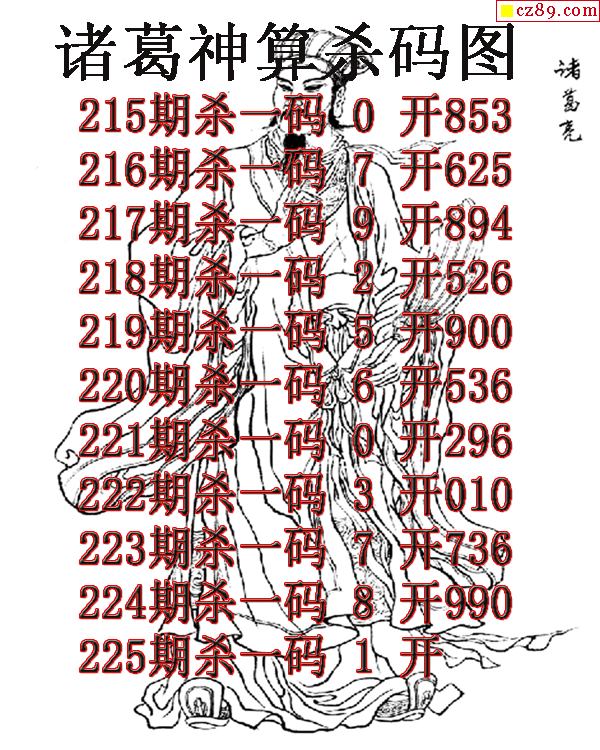 cz89.com
诸葛神算杀码图
诸葛亮
215期杀一码 0 开853
216期杀一码 7 开625
217期杀一码 9 开894
218期杀一码 2 开526
219期杀一码 5 开900
220期杀一码 6 开536
221期杀一码 0 开296
222期杀一码 3 开010
223期杀一码 7 开736
224期杀一码 8 开990
225期杀一码 1 开